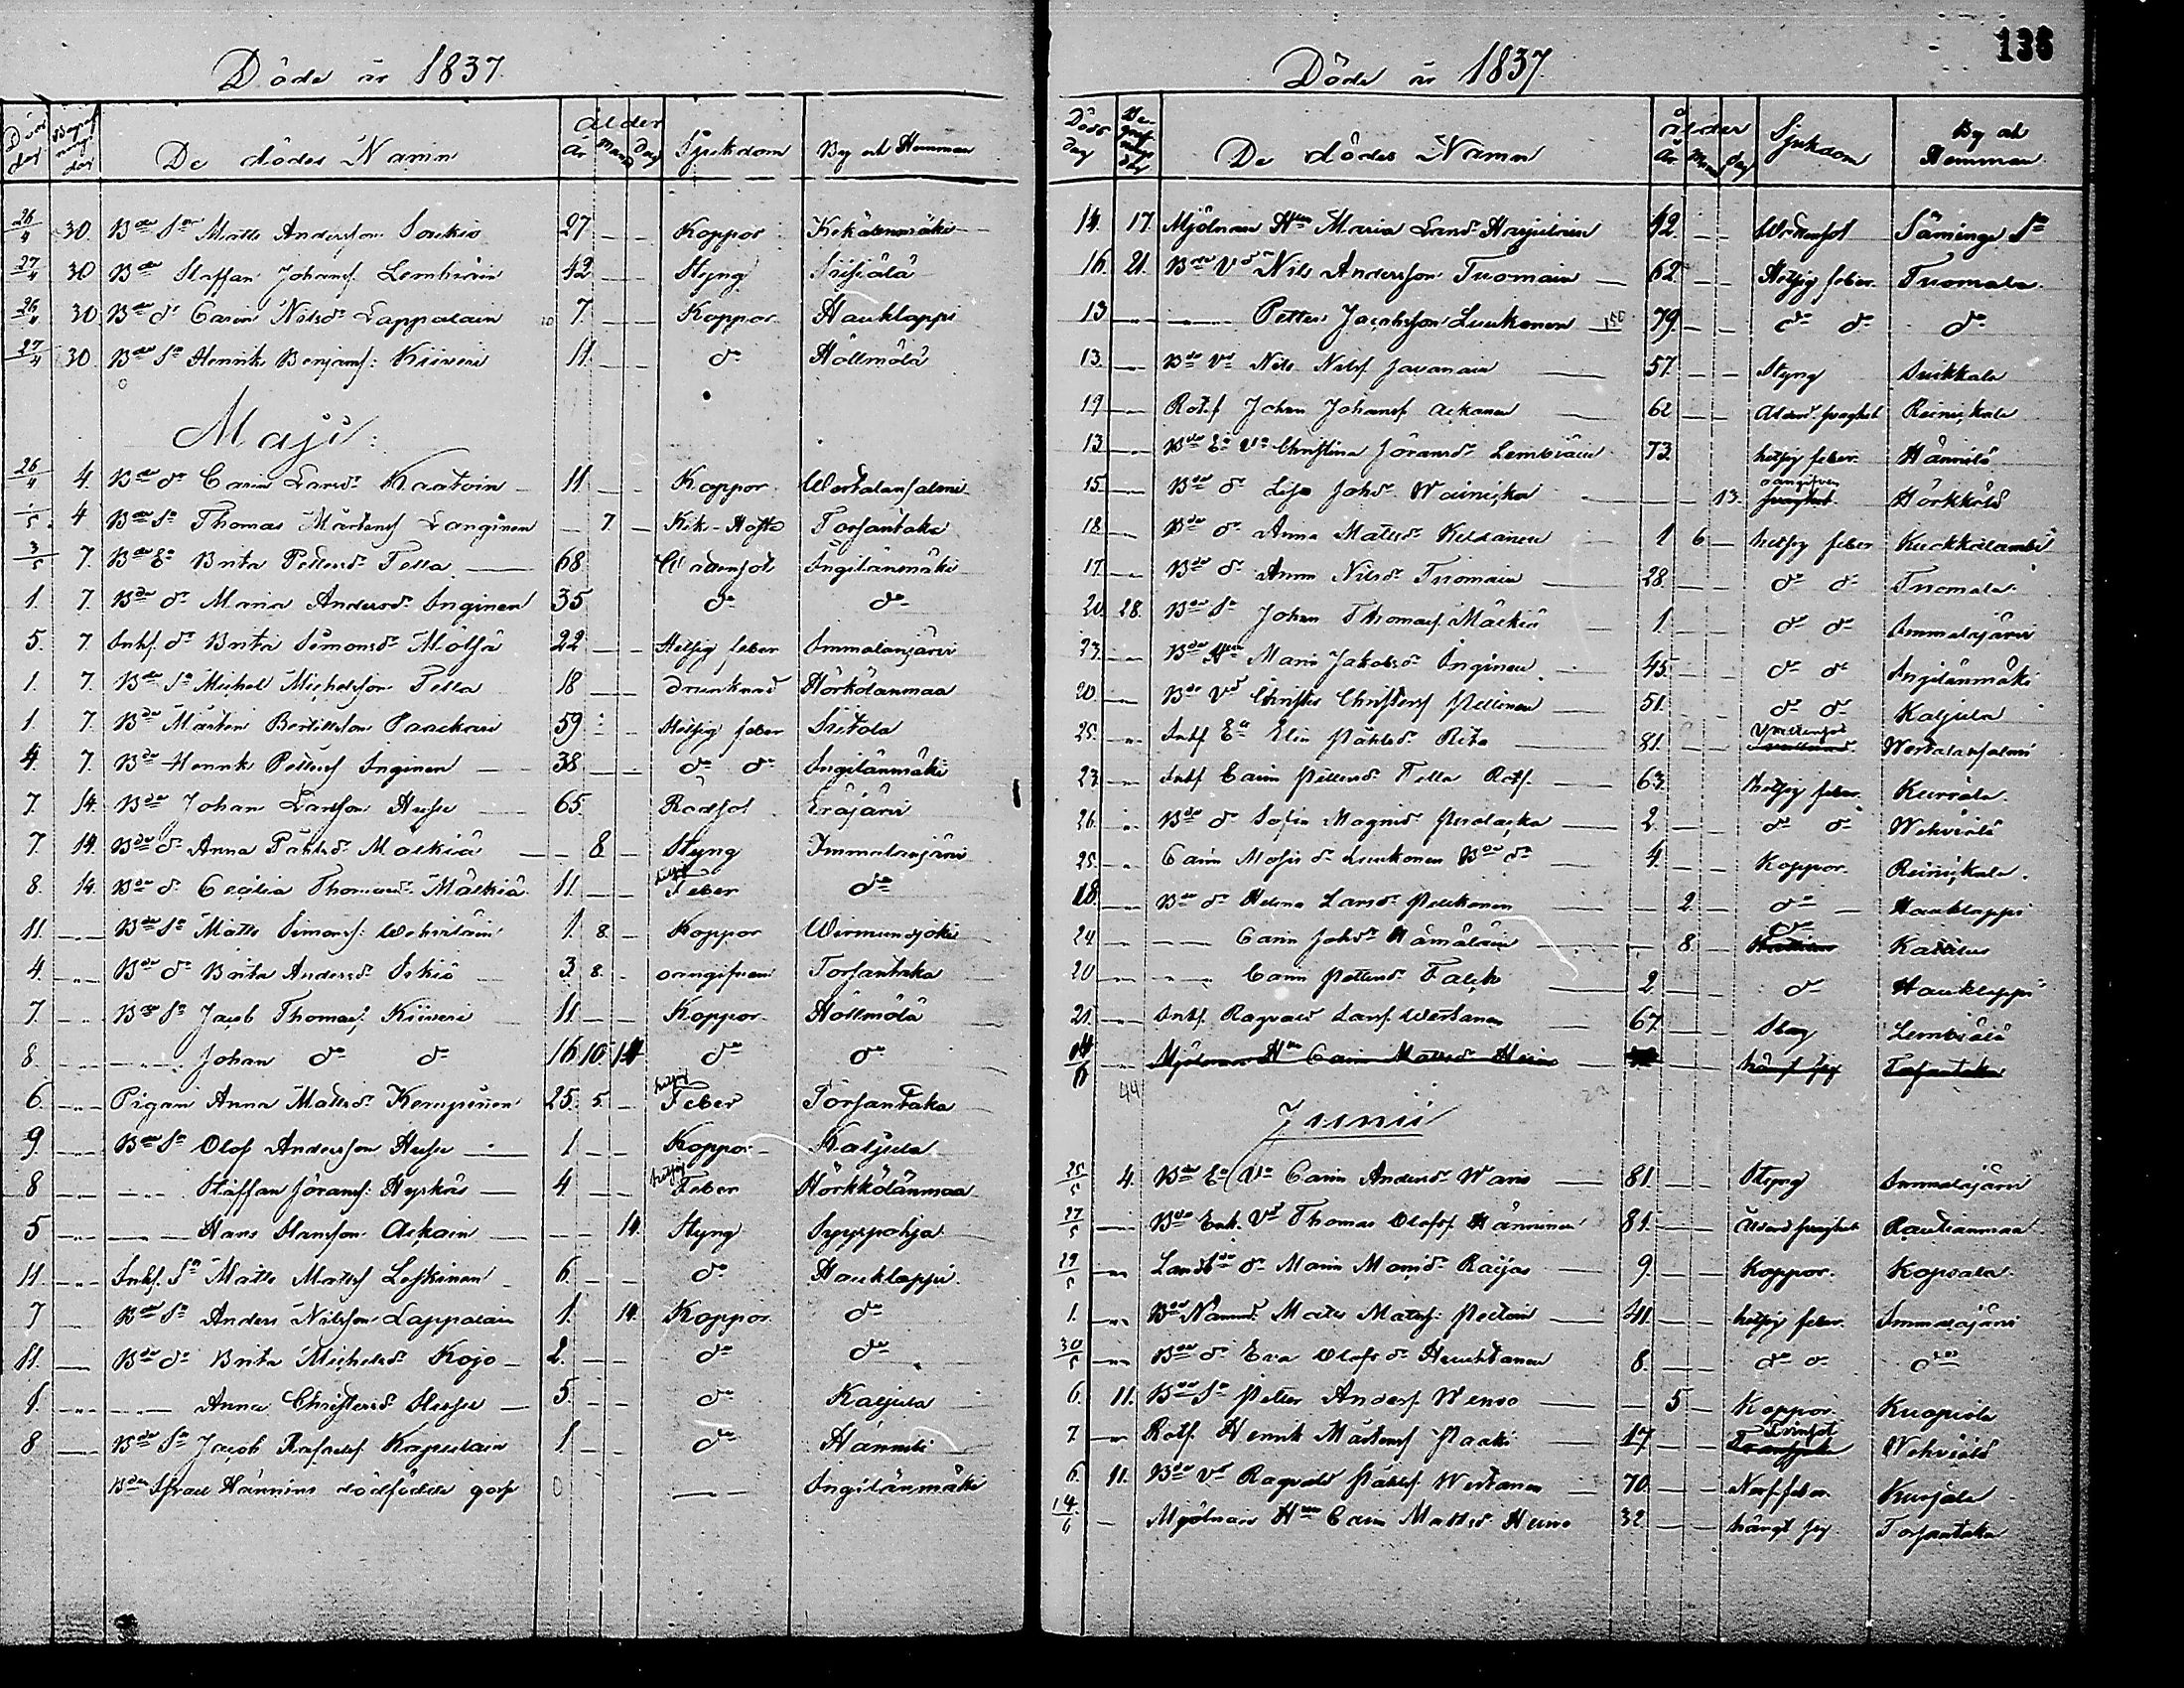 Döde år 1837.
Död dag Begrafnings dag De dödes Namn ålder År Mån Dag Sjukdom By och Hemman
26/4 30. Bde Sn Matts Andersson Soukio 27 — — Koppor Kekälenmäki
27/4 30 Bde Staffan Johansf Lembiäin 42 — — Styng Siisiälä
26/4 30 Bde dr Carin Nilsdr Lappalain 7. — — Koppor Hauklappi
27/4 30. Bde Sn Henrik Benjamsf: Kiiveri 11. — — do Höllmölä
Maji:
26/4 4. Bde dr Carin Larsdr Kaatoin 11 — — Koppor Wertalansalmi
1/5. 4 Bde Sn Thomas Mårtensf Langinen — 7. — Kik-Hosta Torsantaka
3/5 7. Bde Ea Brita Pettersdr Tella 68 Wattensot Ingilänmäki
1. 7. Bde dr Maria Andersdr Inginen 35 do do
5. 7 Inhf. dr Brita Simonsdr Mölsä 22 — — Hetsig feber Immalanjärvi
1. 7. Bde Sn Michel Michelsson Tella 18 — — drunknad Hörkölänmaa
1 7. Bde Mårten Bertillsson Paackari 59 — Hetsig feber Siitola
4. 7. Bde Henrik Pettersf Inginen 38 — — do do Ingilänmäki
7. 14. Bde Johan Larsson Husu 65. Rödsot Eräjärvi
7. 14. Bde dr Anna Påhlsdr Mälkiä — 8 — Styng Immalanjärvi
8. 14. Bde dr Cecilia Thomasdr Mälkiä 11. — — hetsig Feber do
11. — Bde Sn Matts Simonsf: Wehviläin 1. 8. — Koppor Wirmundjoki
4. — Bde dr Brita Andersdr Iskiä 3. 8. — oangifven Torsantaka
7. — Bde Sn Jacob Thomasf. Kiiveri 11. — — Koppor Höllmölä
8. — Johan do do 16 10. 14 do do
6. — Pigan Anna Mattsdr Kempinen 25. 5. — hetsig Feber Torsantaka
9. — Bde Sn Olof Andersson Husu 1 — — Koppor Kaljula
8 — Staffan Göransf: Hyrkäs 4. — — hetsig Feber Hörkkölänmaa
5 — Hans Hansson Ackain — — 14. Styng Syyspohja
11. — Inhf. Sn Matts Mattsf Leskinen 6. — — do Hauklappi
7 — Bde Sn Anders Nilsson Lappalain 1. 14. Koppor do
11. — Bde dr Brita Michelsdr Kojo 2. — — do do
1. — Anna Christersdr Husu 5. — — do Kaljula
8 — Bde Sn Jacob Kapulain 1. — — do Hännilä
Bden Israel Hännins dödfödde goss 0 — Ingilänmäki
136
Döde år 1837.
Döds dag Begrafnings dag De dödes Namn ålder År Mån dag Sjukdom By och Hemman
14. 17. Mjölnare Hun Maria Larsdr Harjulain 42. — — Wattensot Säminge Sn
16. 21. Bde Vd Nils Andersson Tuomain 62 — — Hetsig feber Tuomala
13 — Petter Jacobsson Luukonen 79. — — do do do
13. — Bde Vd Nils Nilsf Javanain 57. — — Styng Suikkala
19 — Rotf Johan Johansf Ackanen 62 — — Reinickala
13 — Bde Ea Va Christina Göransdr Lembiäin 73 hetsig feber Hännilä
15. — Bde dr Lisa Johsdr Wainicka — — 13. oangifven Hörkkölä
18. — Bde dr Anna Mattsdr Keltanen 1 6 — hetsig feber Kuckkalambi
17. — Bde dr Anna Nilsdr Tuomain 28. — — do do Tuomala
20. 28. Bde Sn Johan Thomasf Mälkiä 1. — — do do Immalajärvi
23. — Bde Hun Maria Jakobsdr Inginen 45. — — do do Ingilänmäki
20. — Bde Vd Christer Christersf Pellinen 51. do do Kaljula
25. — Inhf Ea Elin Påhlsdr Rita 81. — — Wertalansalmi
23 — Inhf Carin Pettersdr Tella Rotf. 63. hetsig feber Kurvala
26. — Bde dr Sofia Magnisdr Peralacka 2. — — do do Wehviälä
25. — Carin Mosis dr Luukonen Bde dr 4. — — Koppor Reinickala.
18. — Bde dr Helena Larsdr Pelkonen — 2. — do Hauklappi
24. — Carin Johsdr Hämäläin — 8. — do
20 — Carin Pettersdr Falck 2. — — do Hauklappi
21. — Inhf. Ragvald Larsf. Wertanen 67. — — Stag Lembiälä
Mjölnare Hun Carin Mattsdr Huin hängt sig Torsantaka
44
Junii
25/5 4. Bde Ea Va Carin Andersdr Waris 81. Styng Immalajärvi
27/5 — Bde Enk. Vd Thomas Olofsf Hänninen 81. — — Rautianmaa
29/5 — Landbde dr Maria Raijas 9. — — Koppor. Kopsala
1. — Bde Matts Mattsf: 41. — — hetsig feber. Immalajärvi
30/5 — Bde dr Eva Olofsdr Heinhtanen 8. — — do do do
6. 11. Bde Sn Petter Andersf. Wenso — 5 — Koppor. Kuopiola
7 — Rotf Henrik Mårtensf Paaki 17. — — Tvinsot Wehviälä
6. 11. Bde Vd Ragvald Påhlsf. Wertanen 70. — — Nerf-feber Kurjala
14/6 — Mjölnare Hun Carin Mattsdr Huin 32 — — hängt sig Torsantaka